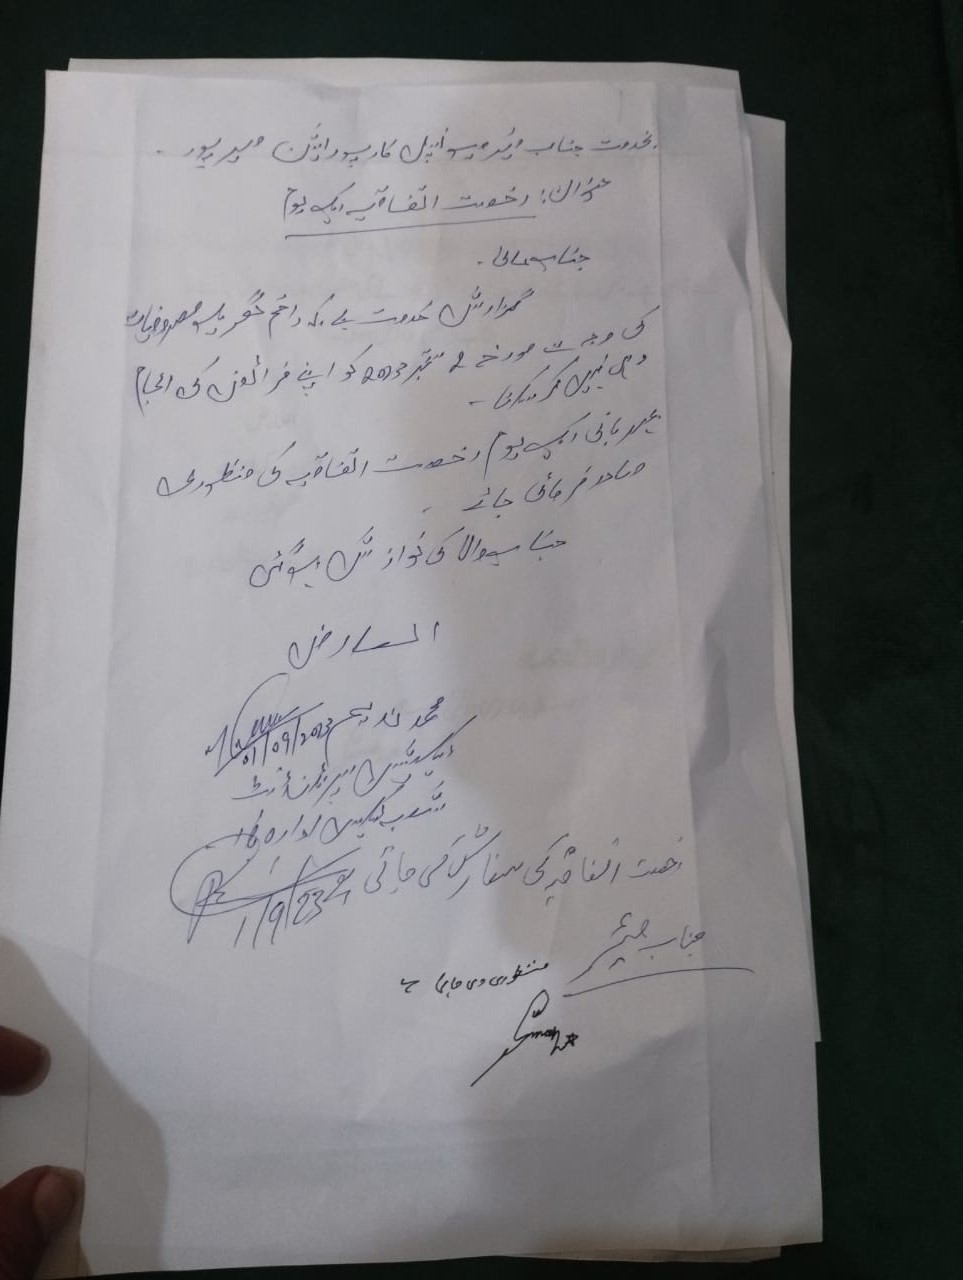 بخدمت جناب میئر میونسپل کارپوریشن میرپور۔
عنوان: رخصت اتفاقیہ ایک یوم
جناب عالی۔
گزارش خدمت ہے کہ راقم گھریلو مصروفیات
کی وجہ سے مورخہ 2 ستمبر 2023 کو اپنے فرائض کی انجام
دہی نہیں کر سکتا۔
مہربانی ایک یوم رخصت اتفاقیہ کی منظوری
صادر فرمائی جائے۔
جناب والا کی نوازش ہوگئی
العارض
محمد ندیم 01/09/2023
ٹیکسیشن سپرنٹنڈنٹ
شعبہ ٹیکس ادارہ ھذا
رخصت اتفاقیہ کی سفارش کی جاتی ہے
1/9/23
جناب میئر
منظوری دی جاتی ہے